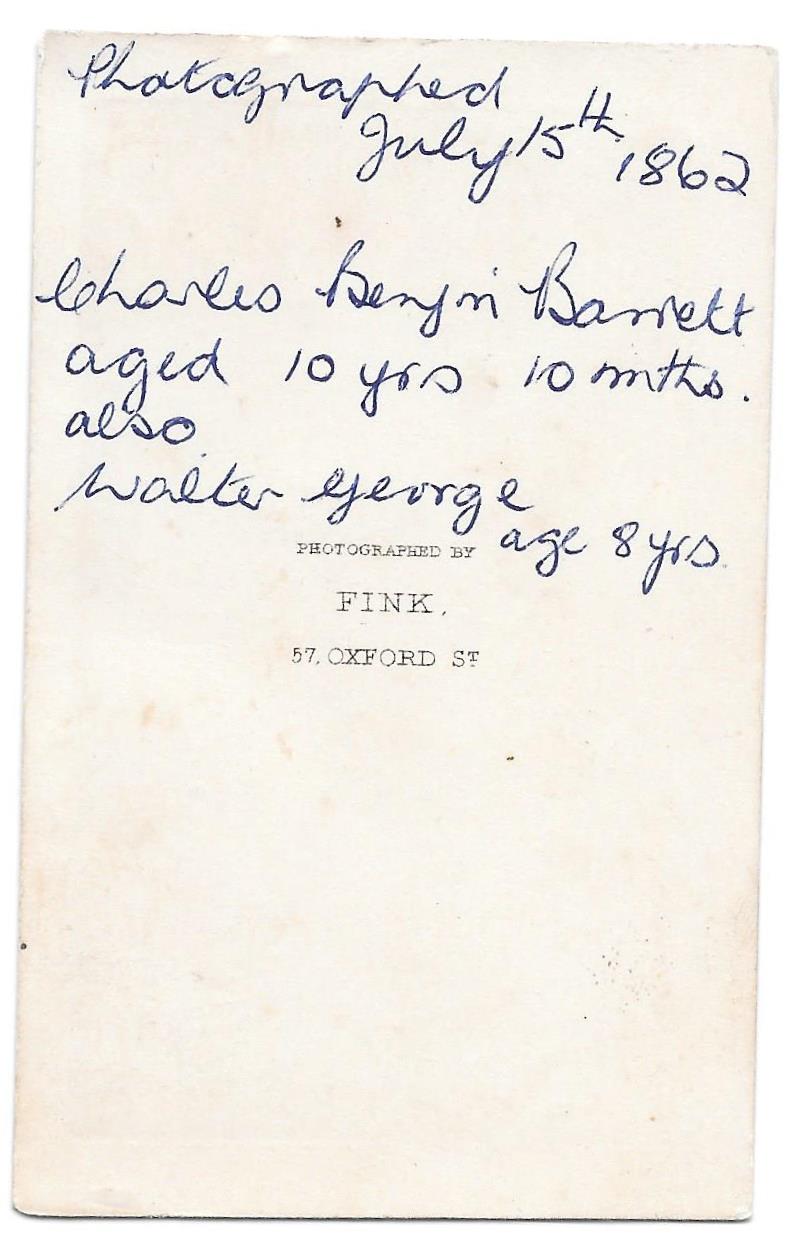 Photographed
July 15th 1862
Charles Benjn Barrett
aged 10 yrs 10 mths.
also
Walter George
age 8 yrs.
PHOTOGRAPHED BY
FINK,
57, OXFORD ST